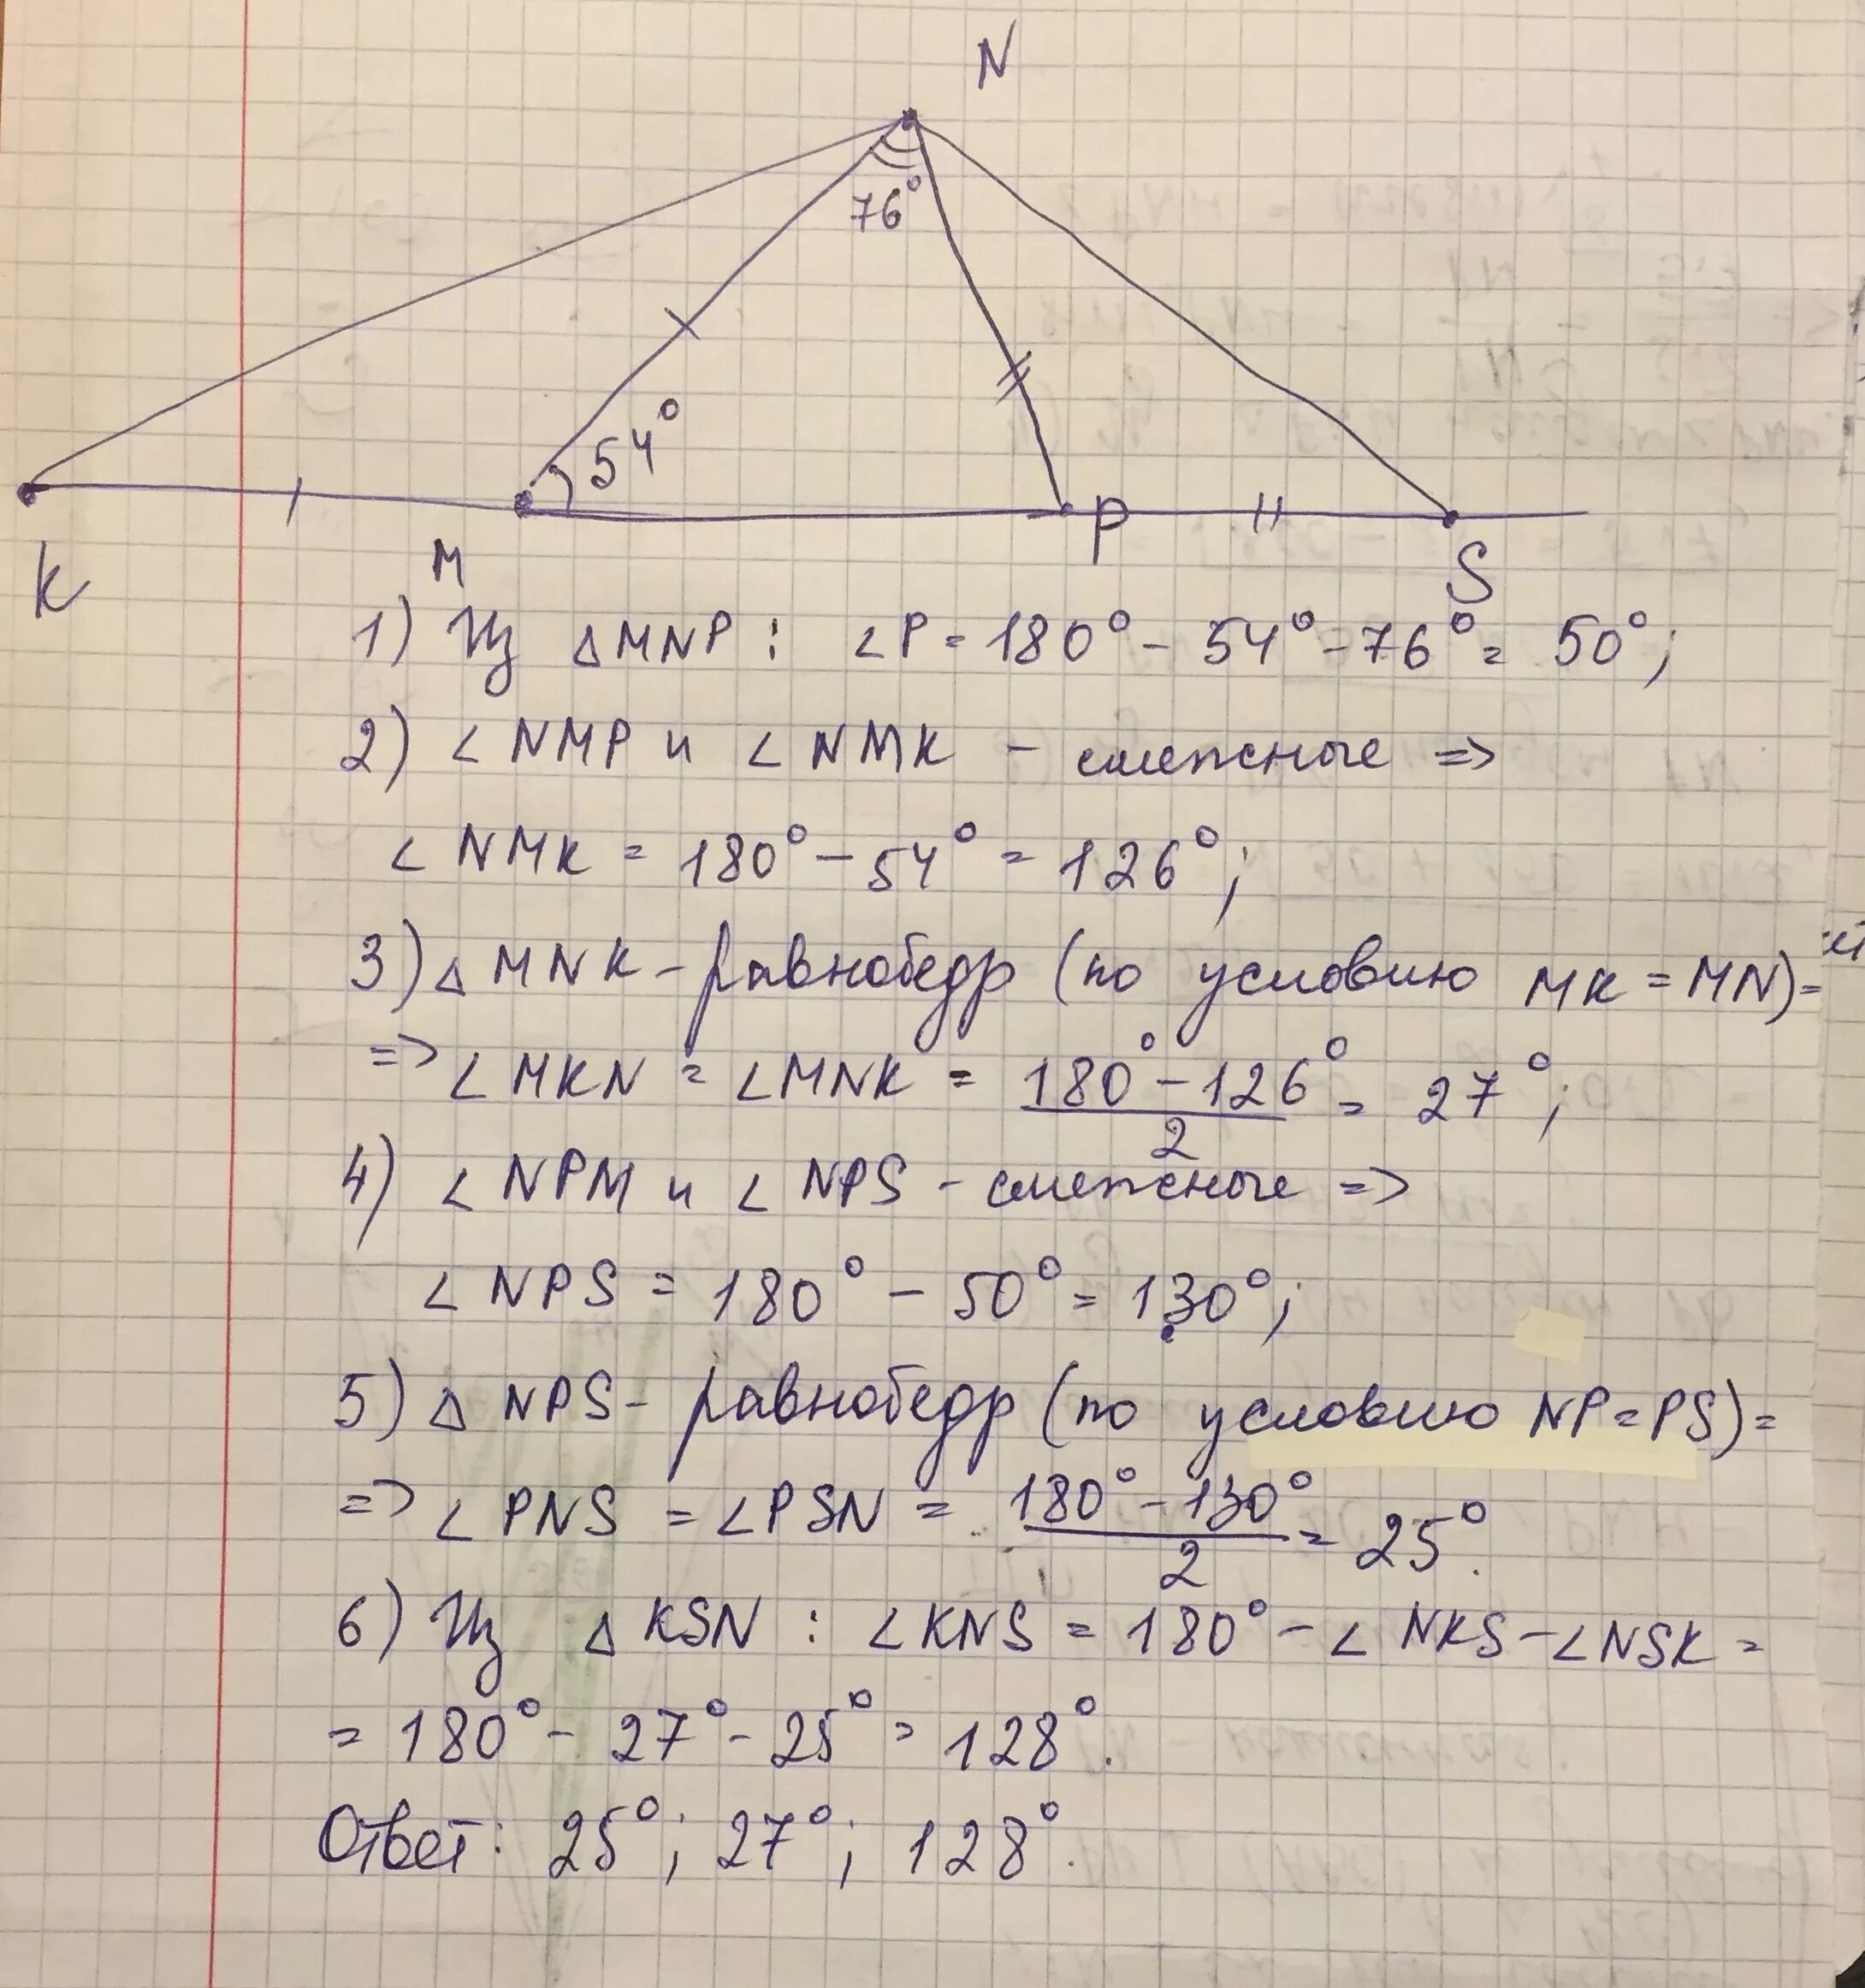 N
76°
54°
K
M
P
S
1) Из △MNP: ∠P = 180° - 54° - 76° = 50°;
2) ∠NMP и ∠NMK - смежные =>
∠NMK = 180° - 54° = 126°;
3) △MNK - равнобедр (по условию MK = MN) =
=> ∠MKN = ∠MNK = (180° - 126°)/2 = 27°;
4) ∠NPM и ∠NPS - смежные =>
∠NPS = 180° - 50° = 130°;
5) △NPS - равнобедр (по условию NP = PS) =
=> ∠PNS = ∠PSN = (180° - 130°)/2 = 25°.
6) Из △KSN: ∠KNS = 180° - ∠NKS - ∠NSK =
= 180° - 27° - 25° = 128°.
Ответ: 25°; 27°; 128°.